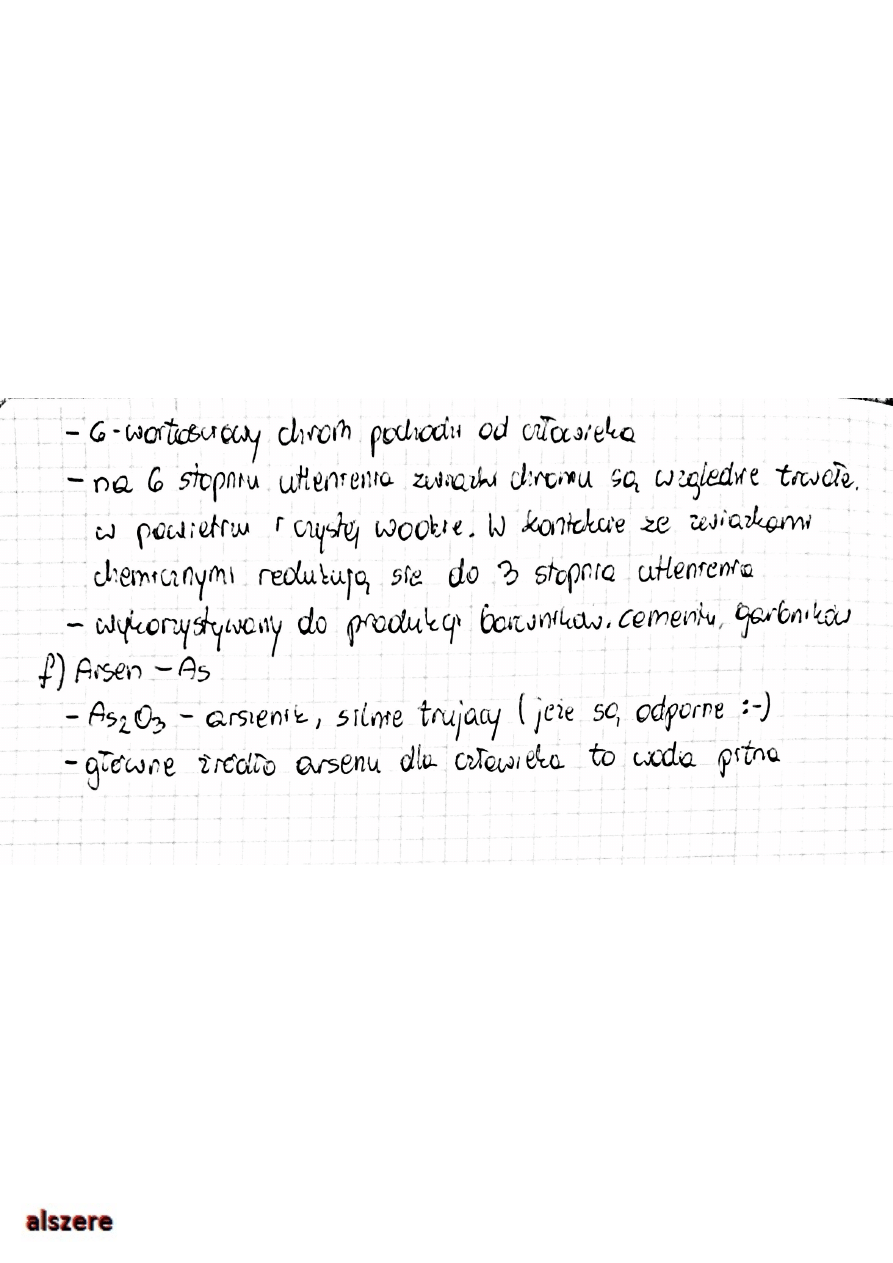 - 6-wartościowy chrom pochodzi od człowieka
- na 6 stopniu utlenienia związki chromu są względnie trwałe.
w powietrzu i czystej wodzie. W kontakcie ze związkami
chemicznymi redukują się do 3 stopnia utlenienia
- wykorzystywany do produkcji barwników, cementu, garbników
f) Arsen - As
- As₂O₃ - arszenik, silnie trujący (jeże są odporne :-)
- główne źródło arsenu dla człowieka to woda pitna
alszere